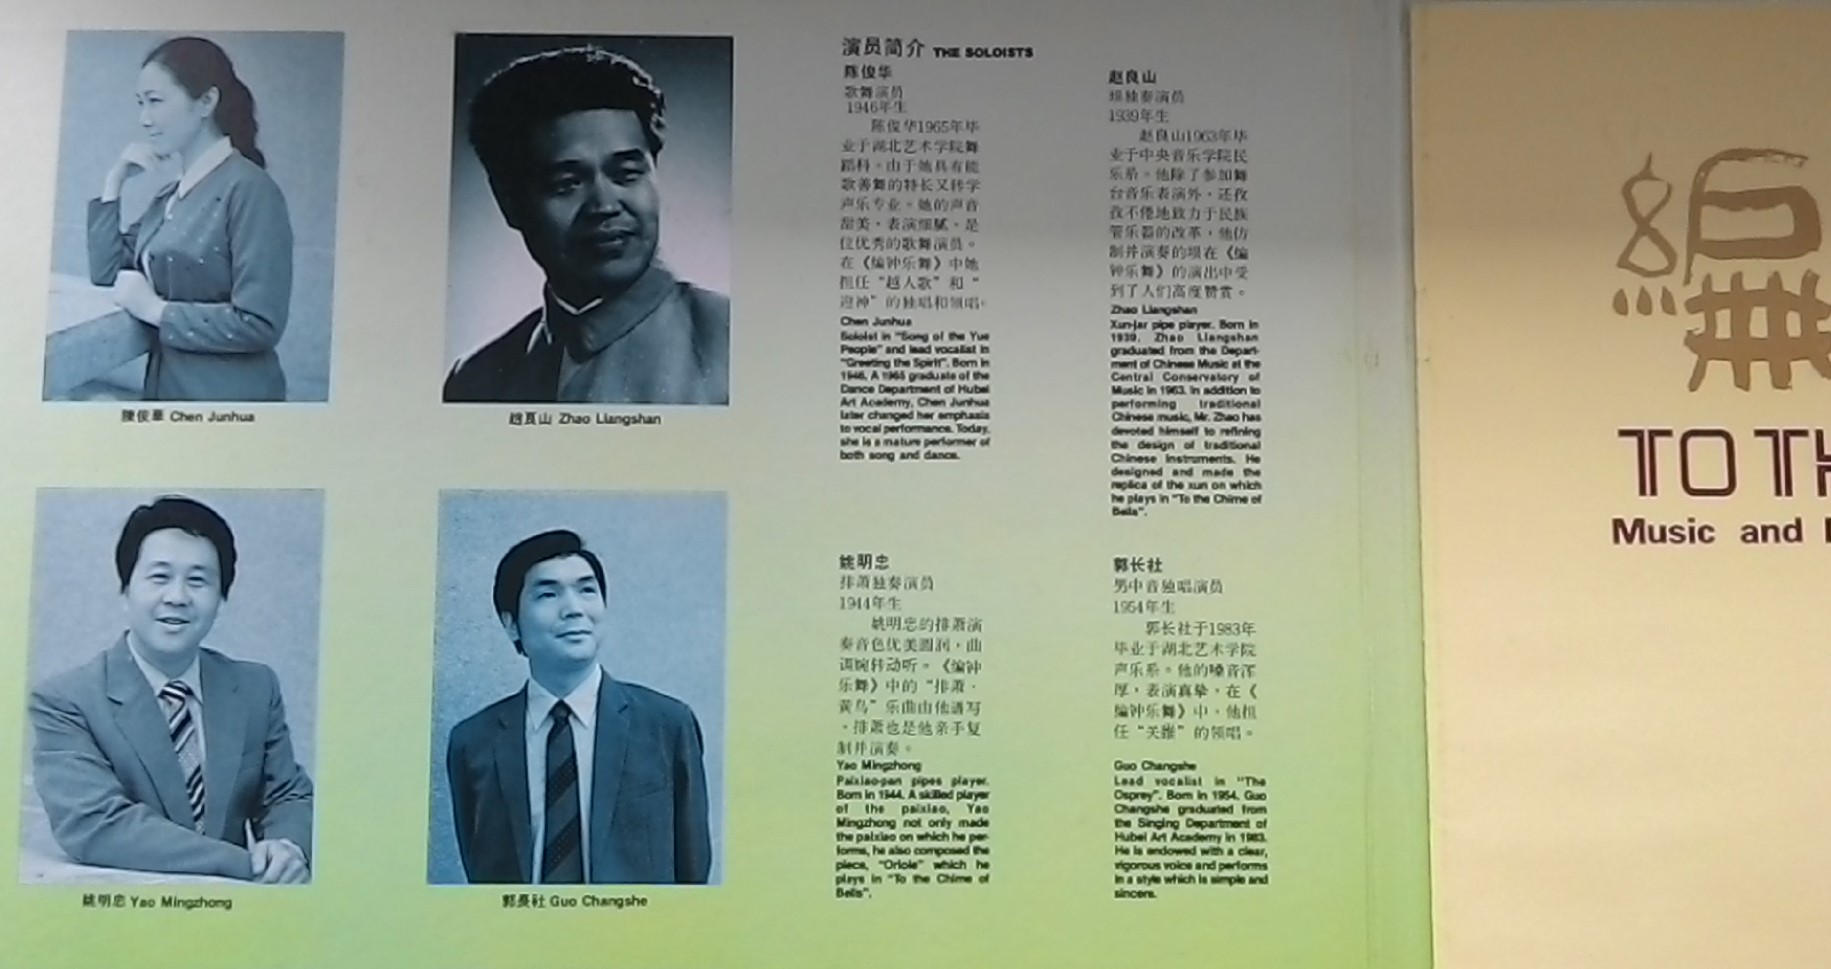 陳俊華 Chen Junhua
趙良山 Zhao Liangshan
姚明忠 Yao Mingzhong
郭長社 Guo Changshe
演员简介 THE SOLOISTS
陈俊华
歌舞演员
1946年生
陈俊华1965年毕
业于湖北艺术学院舞
蹈科。由于她具有能
歌善舞的特长又转学
声乐专业。她的声音
甜美,表演细腻,是
位优秀的歌舞演员。
在《编钟乐舞》中她
担任“越人歌”和“
迎神”的独唱和领唱。
Chen Junhua
Soloist in "Song of the Yue
People" and lead vocalist in
"Greeting the Spirit". Born in
1946. A 1965 graduate of the
Dance Department of Hubei
Art Academy, Chen Junhua
later changed her emphasis
to vocal performance. Today,
she is a mature performer of
both song and dance.
赵良山
埙独奏演员
1939年生
赵良山1963年毕
业于中央音乐学院民
乐系。他除了参加舞
台音乐表演外,还孜
孜不倦地致力于民族
管乐器的改革,他仿
制并演奏的埙在《编
钟乐舞》的演出中受
到了人们高度赞赏。
Zhao Liangshan
Xun-jar pipe player. Born in
1939, Zhao Liangshan
graduated from the Depart-
ment of Chinese Music at the
Central Conservatory of
Music in 1963. In addition to
performing traditional
Chinese music, Mr. Zhao has
devoted himself to refining
the design of traditional
Chinese instruments. He
designed and made the
replica of the xun on which
he plays in "To the Chime of
Bells".
姚明忠
排萧独奏演员
1944年生
姚明忠的排萧演
奏音色优美圆润,曲
调婉转动听。《编钟
乐舞》中的“排萧·
黄鸟”乐曲由他谱写
,排萧也是他亲手复
制并演奏。
Yao Mingzhong
Paixiao-pan pipes player.
Born in 1944. A skilled player
of the paixiao, Yao
Mingzhong not only made
the paixiao on which he per-
forms, he also composed the
piece, "Oriole" which he
plays in "To the Chime of
Bells".
郭长社
男中音独唱演员
1954年生
郭长社于1983年
毕业于湖北艺术学院
声乐系。他的嗓音浑
厚,表演真挚,在《
编钟乐舞》中,他担
任“关雎”的领唱。
Guo Changshe
Lead vocalist in "The
Osprey". Born in 1954, Guo
Changshe graduated from
the Singing Department of
Hubei Art Academy in 1983.
He is endowed with a clear,
vigorous voice and performs
in a style which is simple and
sincere.
TO TH
Music and